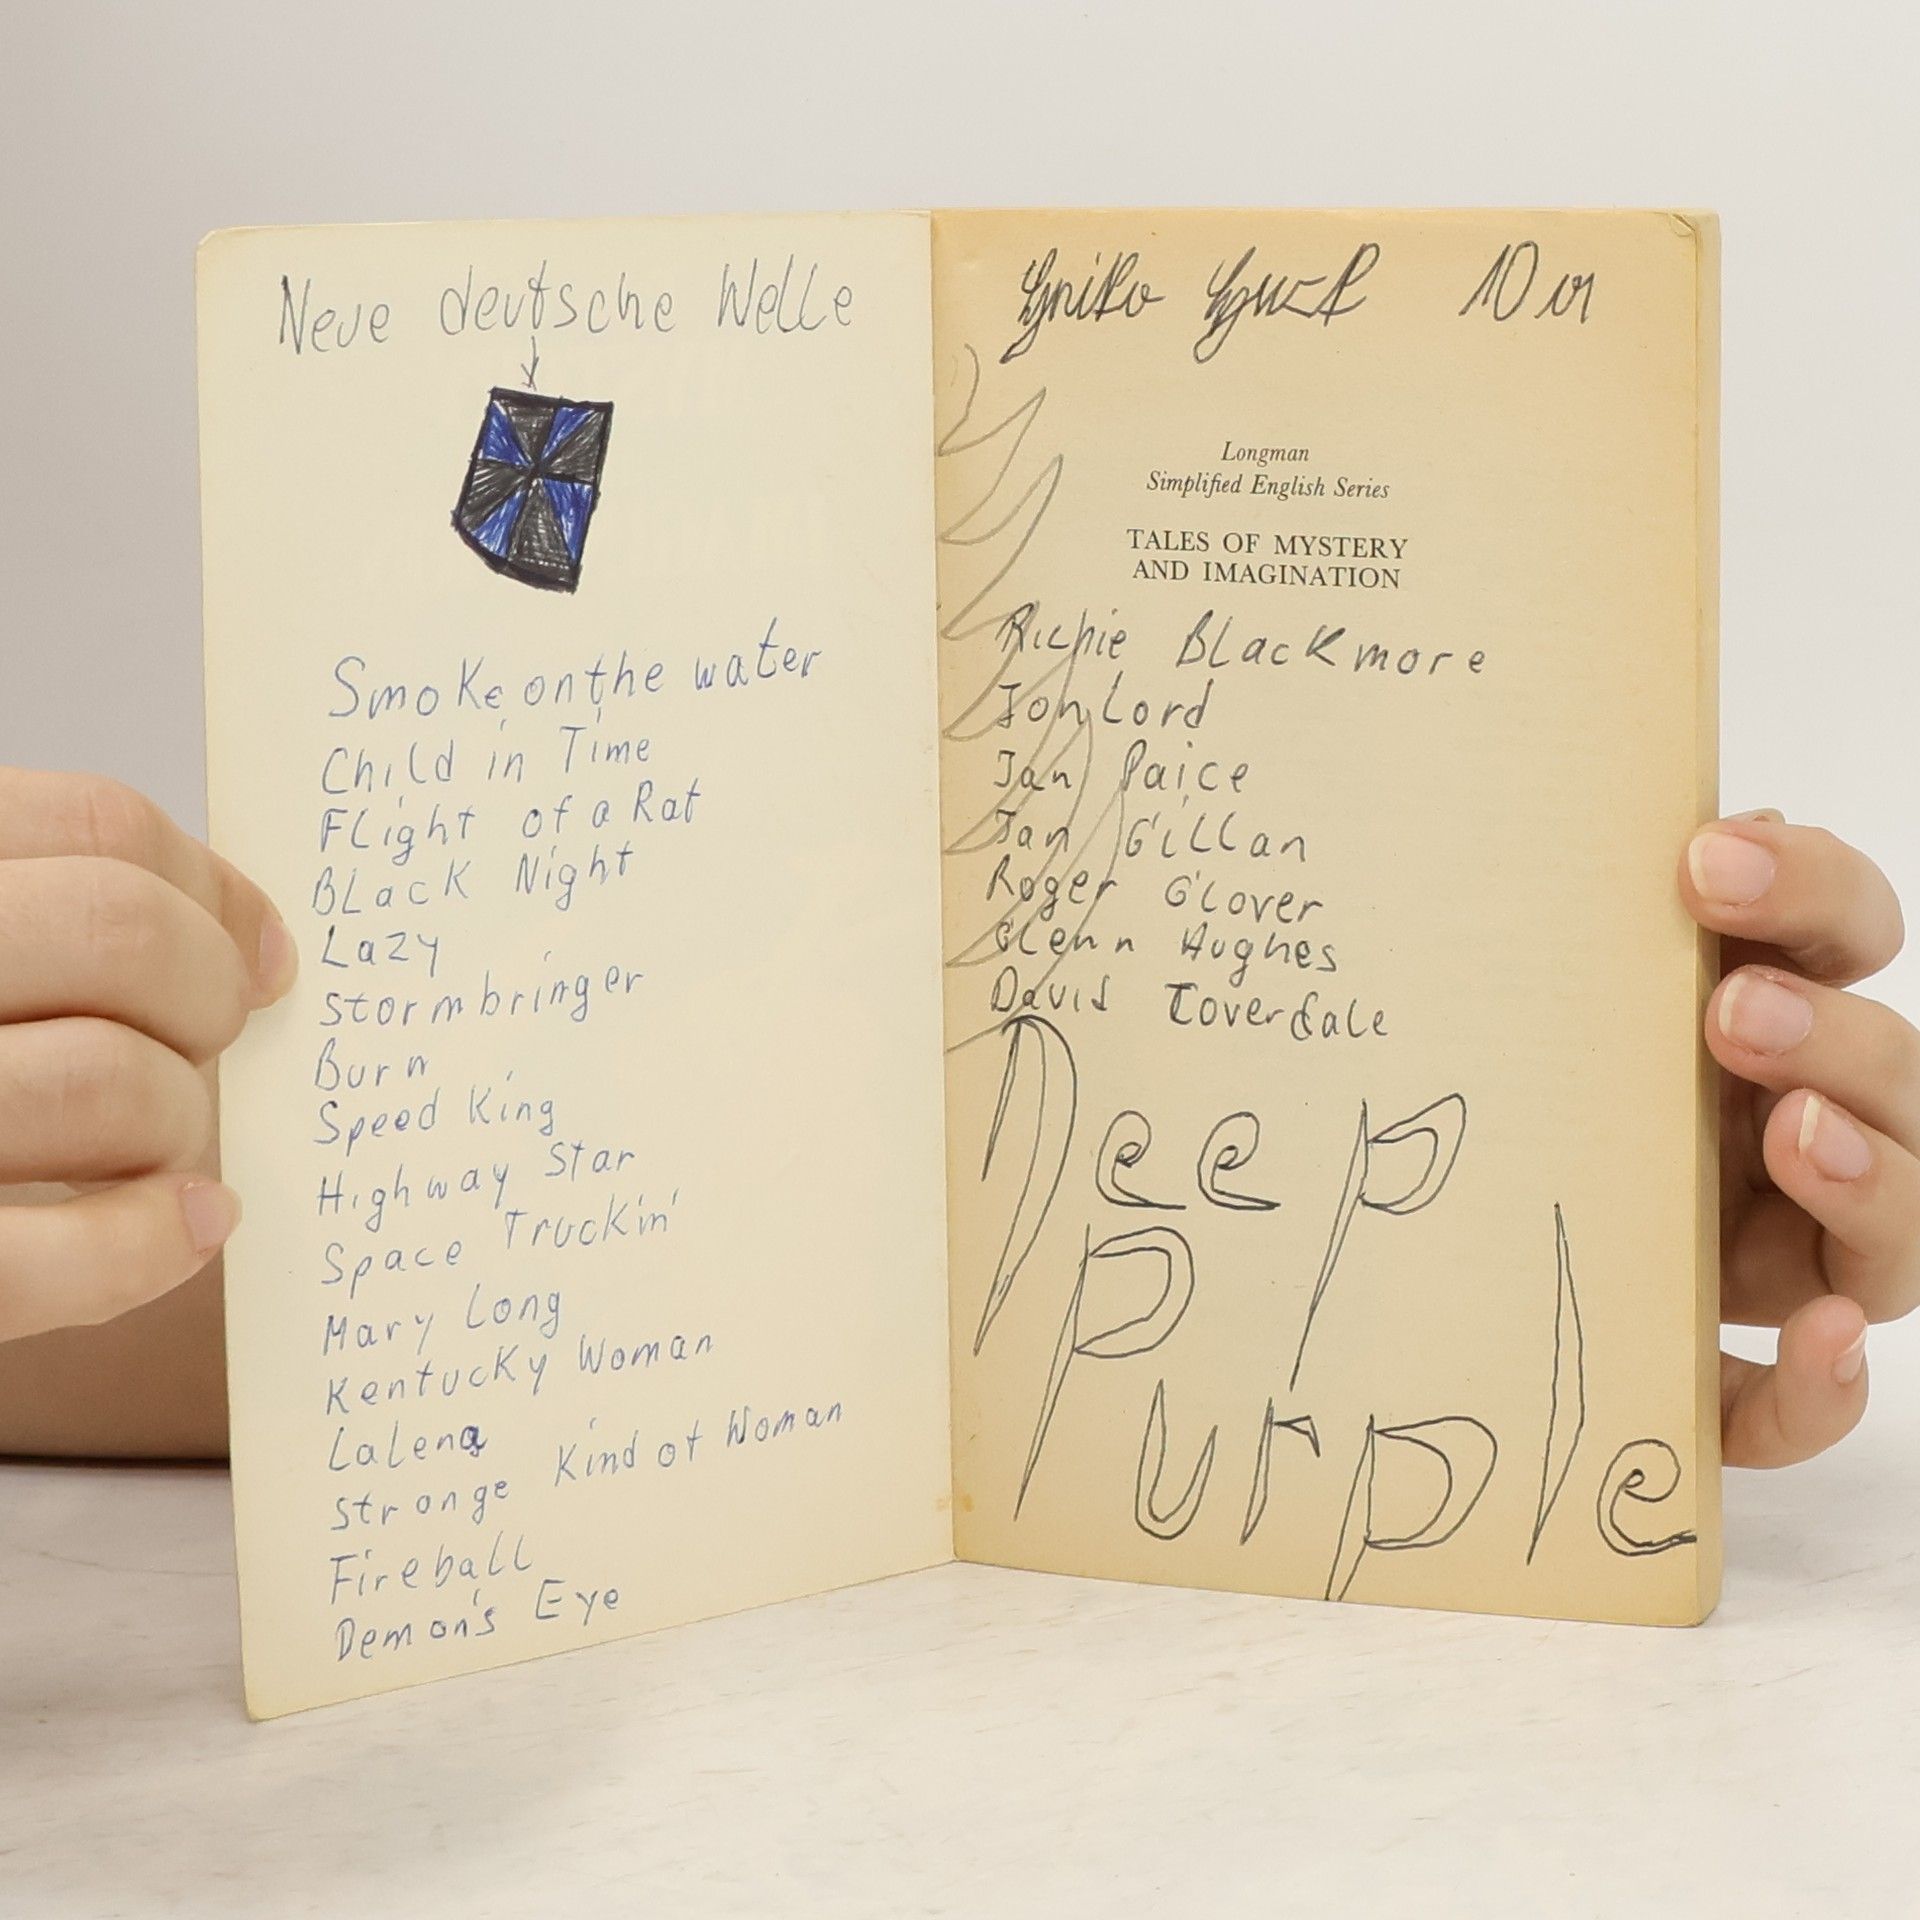 Neue deutsche Welle
Smoke on the water
Child in Time
Flight of a Rat
Black Night
Lazy
Stormbringer
Burn
Speed King
Highway Star
Space Truckin'
Mary Long
Kentucky Woman
Lalena
Strange Kind of Woman
Fireball
Demon's Eye
10
Longman
Simplified English Series
TALES OF MYSTERY
AND IMAGINATION
Richie Blackmore
Jon Lord
Ian Paice
Ian Gillan
Roger Glover
Glenn Hughes
David Coverdale
Deep
Purple